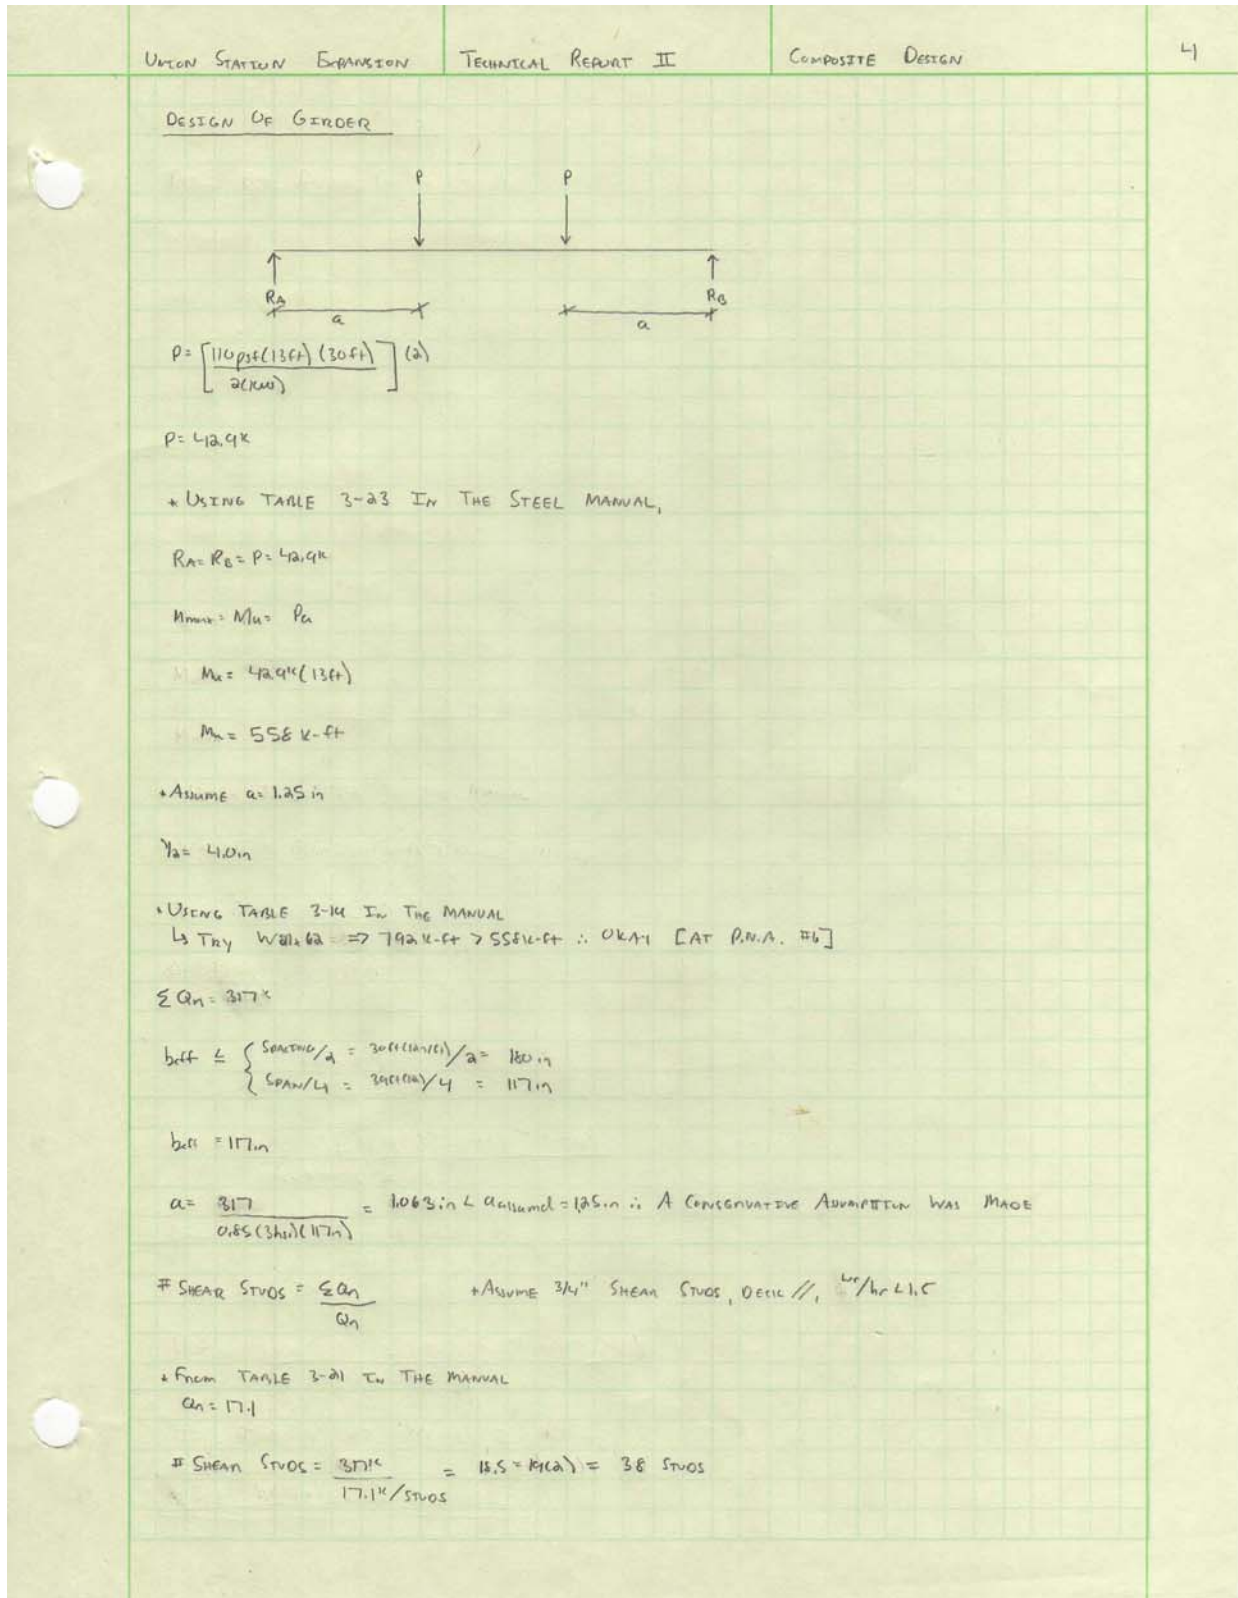 UNION STATION EXPANSION TECHNICAL REPORT II COMPOSITE DESIGN 4
DESIGN OF GIRDER
P P
RA RB
a a
P= [110psf(13ft)(30ft) / 2(1000)](2)
P= 42.9k
* USING TABLE 3-23 IN THE STEEL MANUAL,
RA= RB= P= 42.9k
Mmax= Mu= Pa
Mu= 42.9k(13ft)
Mu= 558 k-ft
* ASSUME a= 1.25 in
Y2= 4.0in
* USING TABLE 3-19 IN THE MANUAL
↳ TRY W21x62 => 792 k-ft > 558k-ft ∴ OKAY [AT P.N.A. #6]
ΣQn= 317k
beff ≤ { SPACING/2 = 30ft(12in/ft)/2= 180 in
SPAN/4 = 39ft(12)/4 = 117in
beff = 117in
a= 317 / 0.85(3ksi)(117in) = 1.063in < aassumed = 1.25in ∴ A CONSERVATIVE ASSUMPTION WAS MADE
# SHEAR STUDS = ΣQn / Qn * ASSUME 3/4" SHEAR STUDS, DECK //, wr/hr <1.5
* FROM TABLE 3-21 IN THE MANUAL
Qn= 17.1
# SHEAR STUDS = 317k / 17.1k/STUDS = 18.5 = 19(2) = 38 STUDS